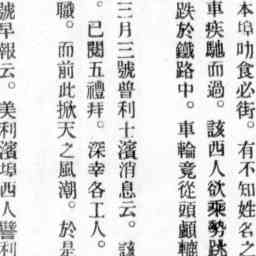 本埠叻食必街。有不知姓名之
車疾馳而過。該西人欲乘勢跳
跌於鐵路中。車輪竟從頭顱轆
三月三號普利士濱消息云。該
。已閱五禮拜。深幸各工人。
職。而前此掀天之風潮。於是
號早報云。美利濱埠西人譬利